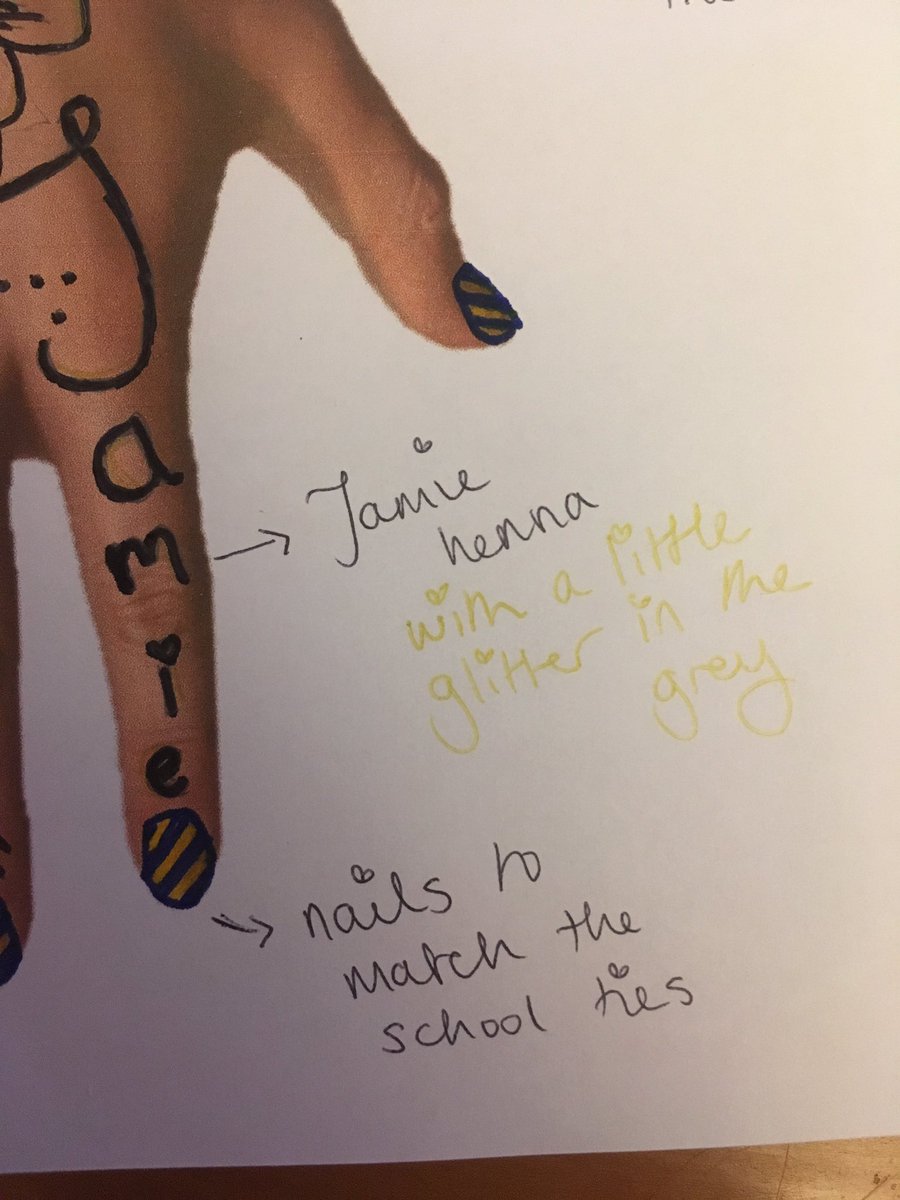 Jamie
Jamie
henna
with a little
glitter in the
grey
nails to
match the
school ties